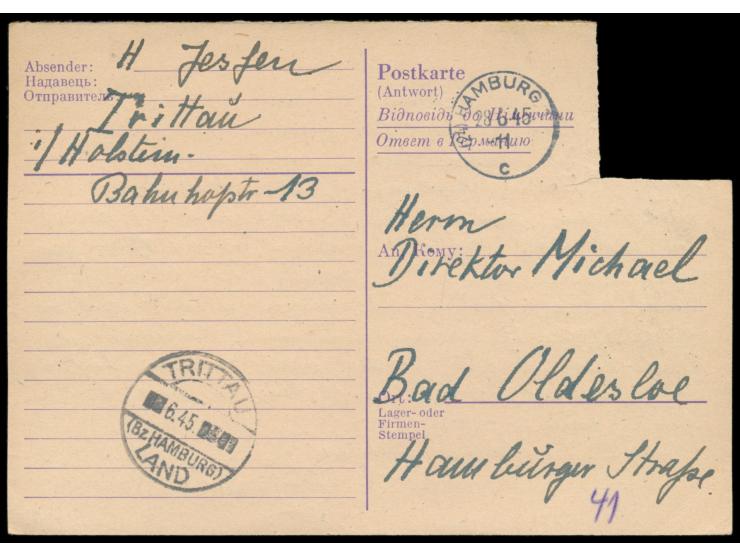 Absender: H Jessen
Надавець:
Отправитель
Trittau
i/ Holstein.
Bahnhofstr-13
Postkarte
(Antwort)
Відповідь до Німеччини
Ответ в Германию
HAMBURG
28.6.45-11
c
Herrn
An/Кому:
Direktor Michael
Bad Oldesloe
Ort:
Lager- oder
Firmen-
Stempel
Hamburger Straße
41
TRITTAU
6.45.
(Bz HAMBURG)
LAND